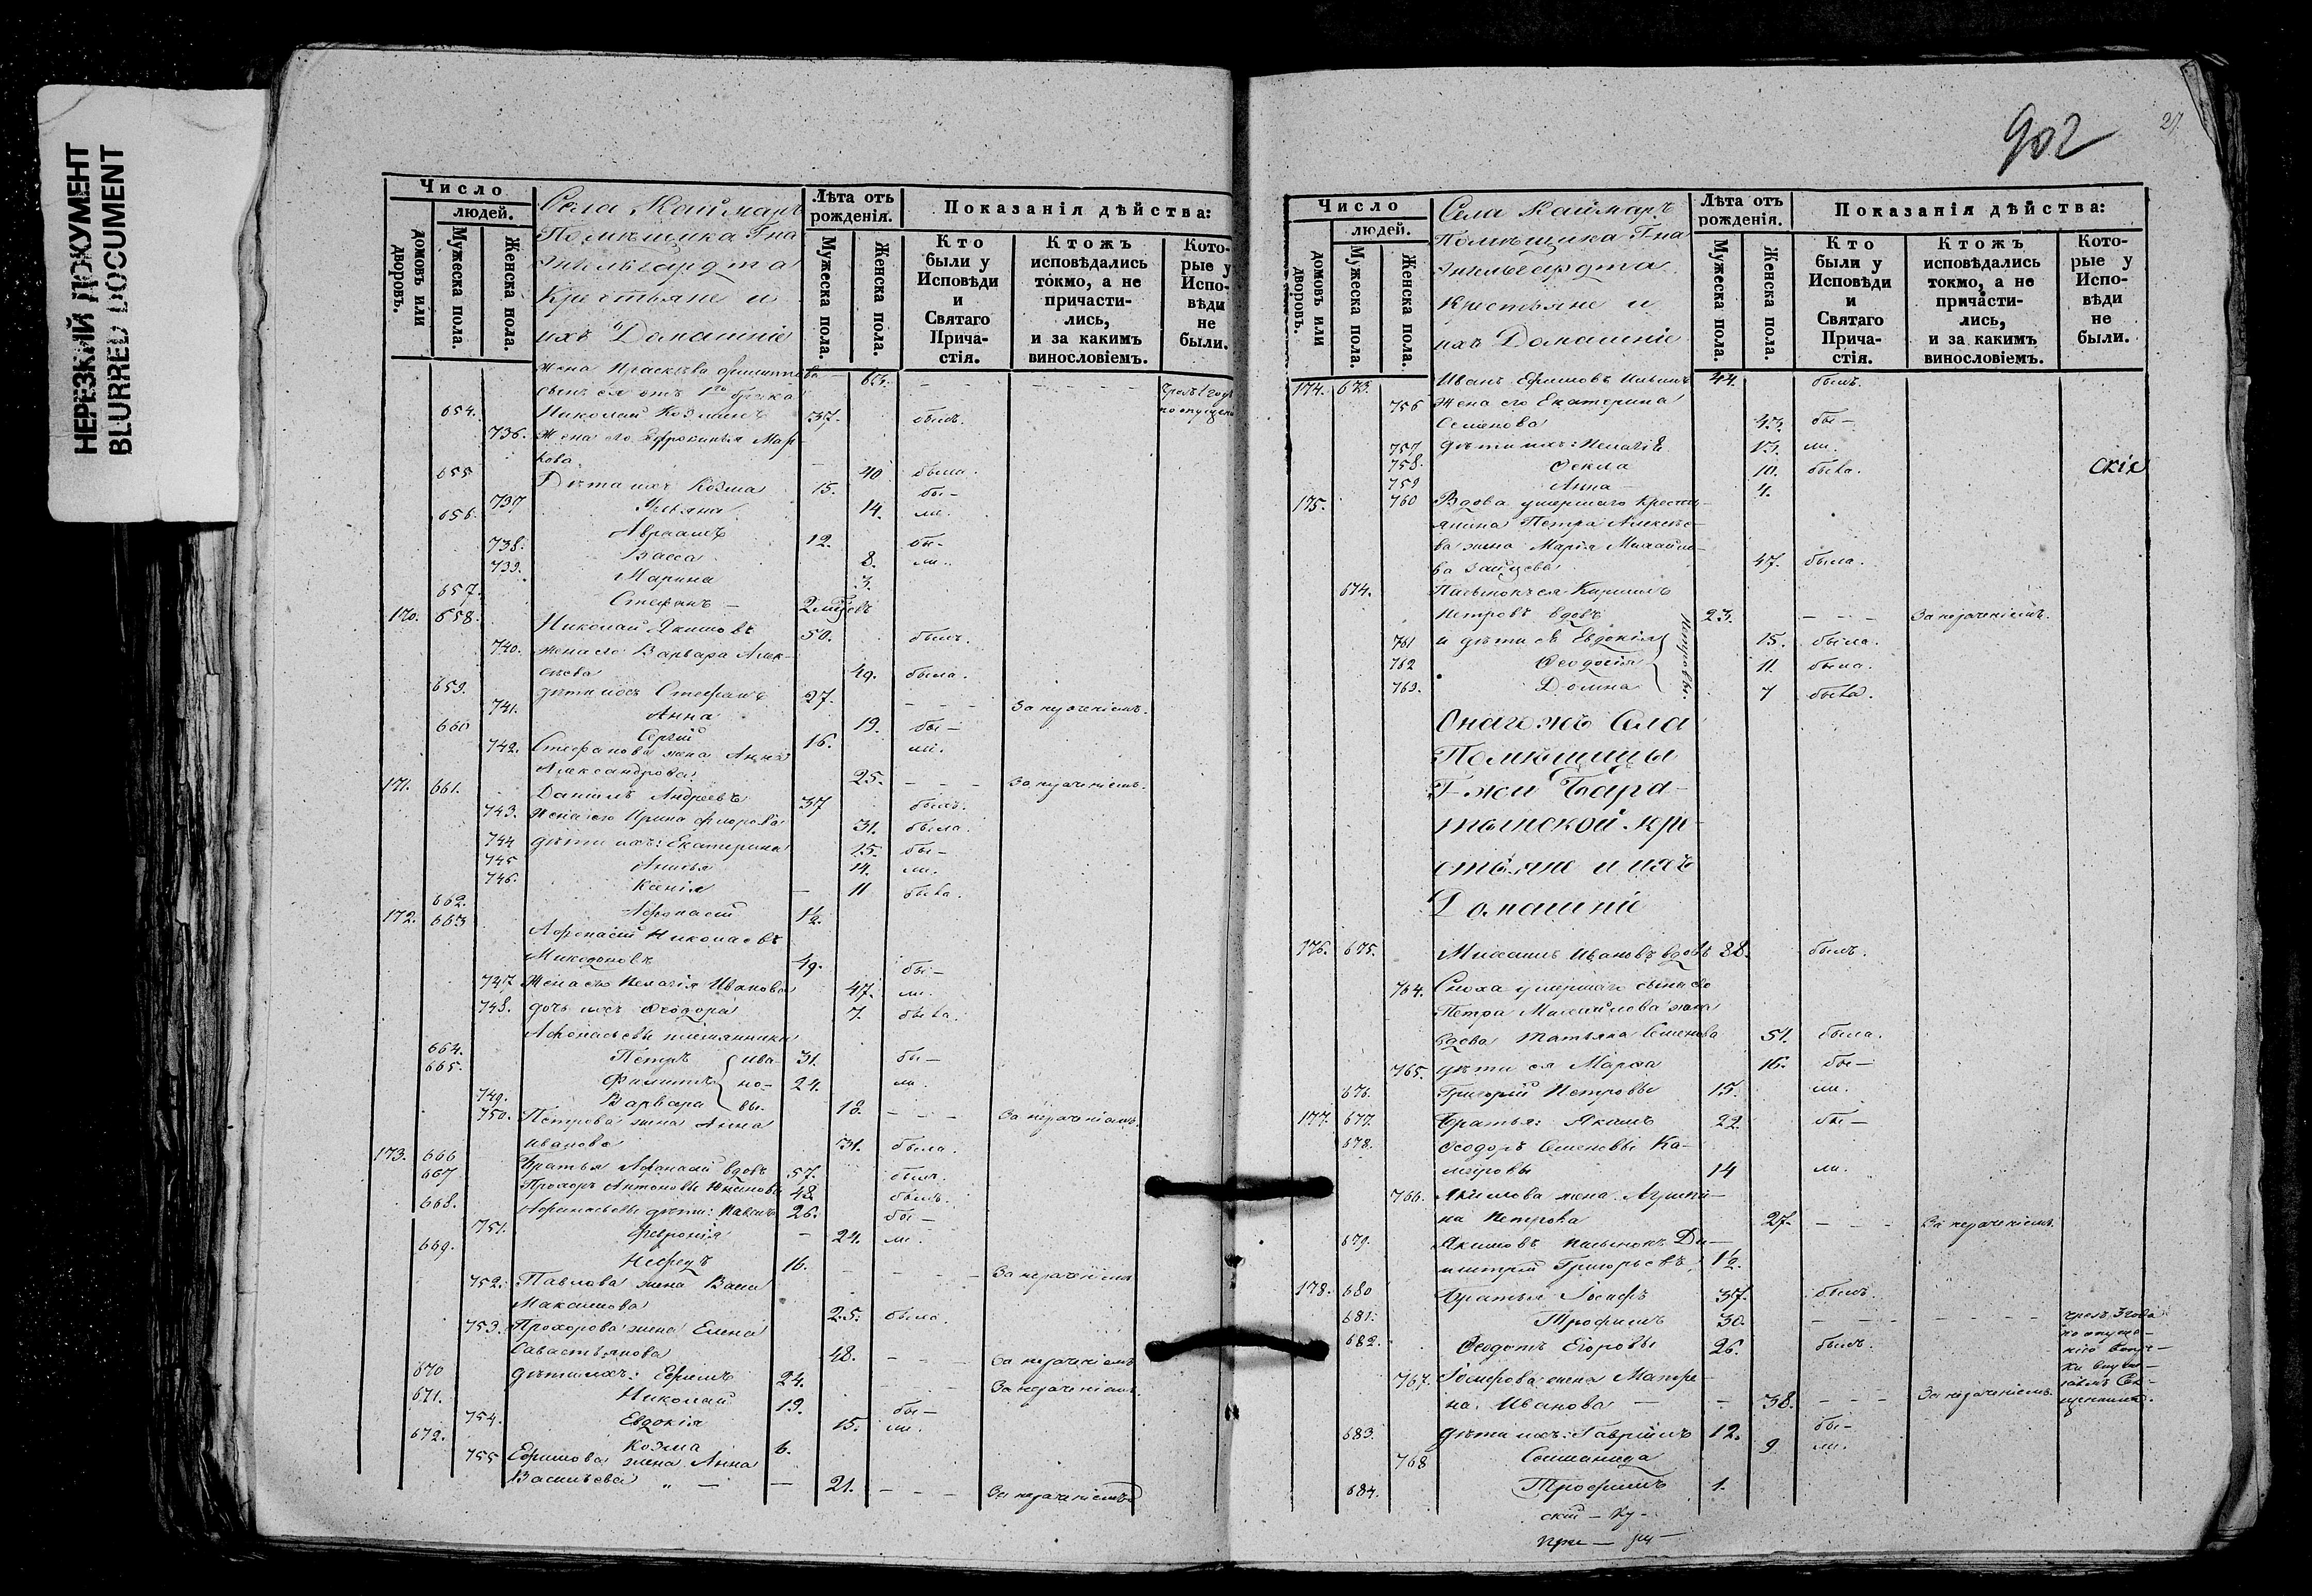 НЕРЕЗКИЙ ДОКУМЕНТ
BLURRED DOCUMENT
Число
людей.
домовъ или дворовъ.
Мужеска пола.
Женска пола.
Села Каймаръ
Помѣщика Г-на
Энгельгардта
Крестьяне и
ихъ Домашніе
Лѣта отъ рожденія.
Мужеска пола.
Женска пола.
Показанія дѣйства:
Кто были у Исповѣди и Святаго Причастія.
Ктожъ исповѣдались токмо, а не причастились, и за какимъ винословіемъ.
Которые у Исповѣди не были.
Жена Праскева Филиппова 63. - - - -
сынъ ея отъ 1го брака
654. Николай Козминъ 37. былъ.
736. Жена его Евфросинья Мар
кова 40 была.
655 Дѣти ихъ Козма 15. бы-
737 Ульяна 14. ли.
656. Авраамъ 12. бы-
738. Васса 8. ли.
739. Марина 3.
657. Стефанъ -
170. 658. Николай Якимовъ 50. былъ.
740. жена его Варвара Алек-
сѣева 49. была.
659. дѣти ихъ Стефанъ 27. - - - За нераченіемъ.
741. Анна 19. бы-
660 Сергій 16. ли.
742. Стефанова жена Анна
Александрова 25. - - - За нераченіемъ.
171. 661. Даніилъ Андреевъ 37 былъ.
743. Жена его Ирина Федорова 31. была.
744 дѣти ихъ: Екатерина 25. бы-
745 Анисья 14. ли.
746. Ксенія - 11 была.
662. Афонасій 1½.
172. 663 Афонасій Николаевъ
49. бы-
747 Жена его Пелагія Иванова 47. ли.
748. дочь ихъ Феодора 7. была.
Афонасьевы племянники
664. Петръ Ива 31. бы-
665. Филиппъ но- 24. ли.
749. Варвара вы. 18. - - - За нераченіемъ.
750. Петрова жена Анна
Иванова 31. была.
173. 666 Братья Афонасій вдовъ 57. былъ.
667 Прохоръ Антоновы 48 былъ.
668. Афонасьевы дѣти: Павелъ 26. бы-
751. Февронія - 24. ли.
669. 16. - - - За нераченіемъ
752. Павлова жена Васса
Максимова 25. была.
753. Прохорова жена Елена
Савастьянова 48. - - - За нераченіемъ
670 дѣти ихъ: Ефимъ 24. - - - За нераченіемъ.
671. Николай 19. бы-
754. Евдокія 15. ли.
672. Козма 6.
755 Ефимова жена Анна
Васильева - - 21. - - - За нераченіемъ
902
27.
Число
людей.
домовъ или дворовъ.
Мужеска пола.
Женска пола.
Села Каймаръ
Помѣщика Г-на
Энгельгардта
Крестьяне и
ихъ Домашніе
Лѣта отъ рожденія.
Мужеска пола.
Женска пола.
Показанія дѣйства:
Кто были у Исповѣди и Святаго Причастія.
Ктожъ исповѣдались токмо, а не причастились, и за какимъ винословіемъ.
Которые у Исповѣди не были.
174. 673. Иванъ Ефимовъ 44. былъ.
756 Жена его Екатерина
Семенова 43. бы-
757 дѣти ихъ: Пелагія 13. ли.
758. Фекла 10. была.
759 Анна 4.
175. 760 Вдова умершаго крестья-
янина Петра Алексѣе-
ва жена Марія Михайло-
ва Зайцева 47. была.
674. Пасынокъ ея Кириллъ
Петровъ вдовъ 23. - - - За нераченіемъ.
761 и дѣти ея Евдокія 15. была.
762 Феодосія Петровы. 11. была.
763. Домна 7 была.
Онаго жъ Села
Помѣщицы
Г-жи Бара-
тынской кре-
стьяне и ихъ
Домашніе
176. 675. Михаилъ Ивановъ вдовъ 88. былъ.
764. Сноха умершаго сына его
Петра Михайлова жена
вдова Татьяна Семенова 51. была.
765. дѣти ея Марфа 16. бы-
676. Григорій Петровы 15. ли.
177. 677. Братья: Якимъ 22. бы-
678. Феодоръ Семеновы Ка-
14 ли.
766. Якимова жена
на Петрова 27. - - - За нераченіемъ.
679. Якимовъ пасынокъ Ди-
митрій Григорьевъ 1½.
178. 680 Братья Іосифъ 37. былъ.
681. Трофимъ 30. - - - - - - - чрезъ 3 года
682. Феодотъ Егоровы 26. былъ.
767. Іосифова жена Матре-
на Иванова - - 38. - - - За нераченіемъ.
683. дѣти ихъ: Гавріилъ 12. бы-
768 Соломанида 9 ли.
684. Трофимъ 1.